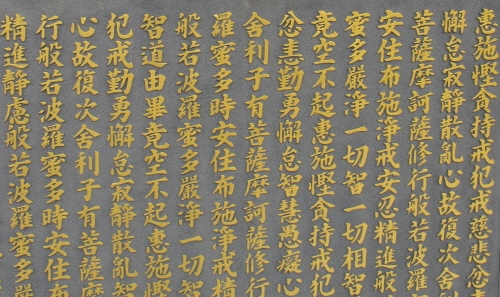 惠施慳貪持戒犯戒慈悲忿
懈怠寂靜散亂心故復次舍
菩薩摩訶薩修行般若波羅
安住布施淨戒安忍精進般
蜜多嚴淨一切智一切相智
竟空不起惠施慳貪持戒犯
忿恚勤勇懈怠智慧愚癡心
舍利子有菩薩摩訶薩修行
羅蜜多時安住布施淨戒精
般若波羅蜜多嚴淨一切智
智道由畢竟空不起惠施慳
犯戒勤勇懈怠寂靜散亂智
心故復次舍利子有菩薩摩
行般若波羅蜜多時安住布
精進靜慮般若波羅蜜多嚴